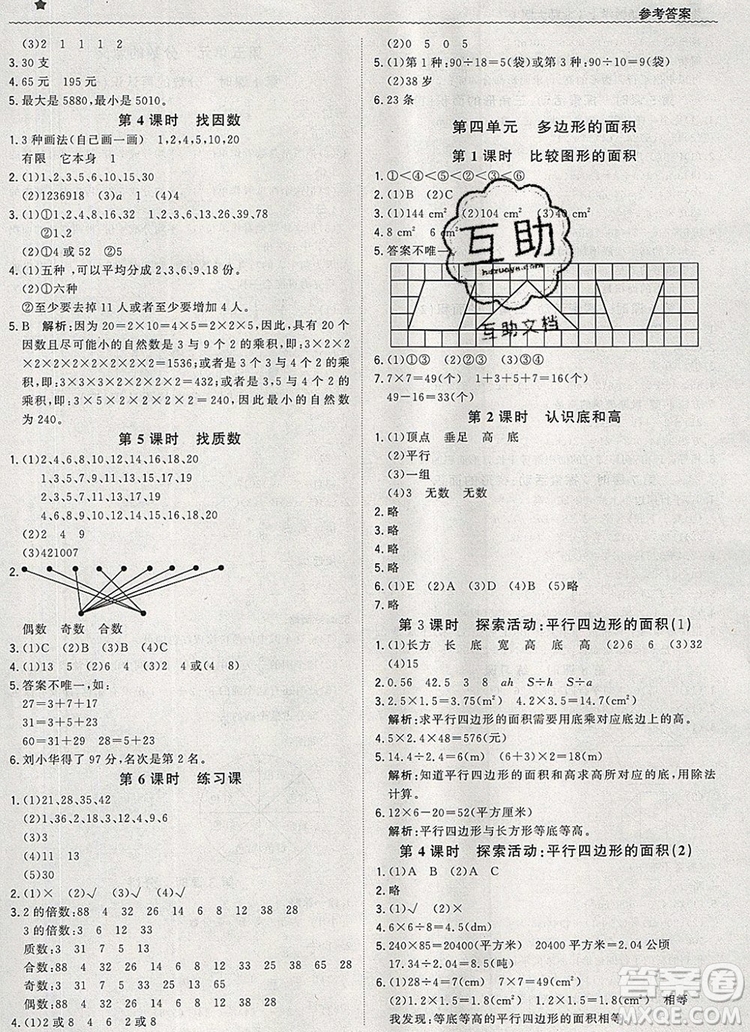 参考答案
(3)2 1 1 1 2
3.30 支
4.65 元 195 元
5.最大是 5880,最小是 5010。
第 4 课时 找因数
1.3 种画法(自己画一画) 1,2,4,5,10,20
有限 它本身 1
2.(1)1,2,3,4,6,8,12,24
(2)1236918 (3)a 1 (4)4
3.(1)①1,2,4,8,16,32 ②1,2,3,6,13,26,39,78
(2)①4 或 52 ②5
4.(1)①五种 ,可以平均分成 2,3,6,9,18 份。
②至少要去掉 11 人或至少增加 4 人。
(2)①六种
5.B 解析:因为 20=2×10=4×5=2×2×5,具有 20 个
因数且尽可能小的自然数是 3 与 9 个 2 的乘积,即:3×
2×2×2×2×2×2×2×2×2=1536;或者是 3 个 3 与 4 个 2 的乘
积,即:3×3×3×2×2×2×2=432;或者是 3,5 与 4 个 2 的
乘积,即:3×5×2×2×2×2=240,因此最小的自然数
为 240。
第 5 课时 找质数
1.(1)2,4,6,8,10,12,14,16,18,20
1,3,5,7,9,11,13,15,17,19
2,3,5,7,11,13,17,19
4,6,8,9,10,12,14,15,16,18,20
(2)2 4 9
(3)421007
2.
偶数 奇数 合数
3.(1)C (2)B (3)C (4)C
4.(1)13 5 (2)15 2 (3)4 6(或 4 8)
5.答案不唯一,如:
27=3+7+17
31=3+11+17
60=29+31
28=5+23
6.刘小华得了 97 分,名次是第 2 名。
第 6 课时 练习课
1.(1)21,28,35,42
(2)1,3,4,9,12,18,36
(3)3
(4)11 13
(5)30
2.(1)× (2)√ (3)√ (4)×
3.2 的倍数:88 4 32 4 6 8 12 38 28
3 的倍数:3 6 12 33
质数:3 31
合数:88 4 32 65 4 6 8 12 33 38 65 28
奇数:3 31 65 33 65
偶数:88 4 32 4 6 8 12 38 28
4.(1)10 (2)4 或 8
(2)0 5 0 5
5.(1)第 1 种:90÷18=5(袋)或第 3 种:90÷10=9(袋)
(2)38 岁
6.23 条
第四单元 多边形的面积
第 1 课时 比较图形的面积
1.①<④<⑤<②<⑥
2.(1)B (2)C
3.(1)144 cm² (2)104 cm² (3)40 cm²
4.8 cm² 6 cm²
5.答案不唯一
互助
互助文档
6.(1)①③ (2)①③ (3)②④
7.7×7=49(个) 1+3+5+7=16(个)
49-16=33(个)
第 2 课时 认识底和高
1.(1)顶点 垂足 高 底
(2)平行
(3)一组
(4)3 无数 无数
2.略
3.略
4.略
5.略
6.(1)E (2)A (3)D (4)B
第 3 课时 探索活动:平行四边形的面积(1)
1.(1)长方 长 底 宽 高 底 高 (2)6 (3)32
(4)15
2.0.56 42.5 3 8 ah S÷h S÷a
3.2.5×1.5=3.75(m²) 4.2×1.5=6.3(cm²)
解析:求平行四边形的面积需要用底乘对应底边上的高。
4.5×2.4×48=576(元)
5.14.4÷6=2.4(m) (6+3)÷2=4.5(m)
解析:知道平行四边形的面积和高求高所对应的底,用除法
计算。
6.12×6-20=52(平方厘米)
解析:平行四边形与长方形等底等高。
第 4 课时 探索活动:平行四边形的面积(2)
1.(1)A (2)B A C
2.略
3.(1)√ (2)×
4.6×6÷8=4.5(dm)
5.240×85=20400(平方米) 20400 平方米=2.04 公顷
17.34÷2.04=8.5(吨)
6.(1)28÷7=4(cm)
(2)1.2×2=2.4(cm²) 1.2×2=2.4(cm²) 相等
我发现:等底等高的平行四边形的面积相等。
答案圈
MXQE.COM